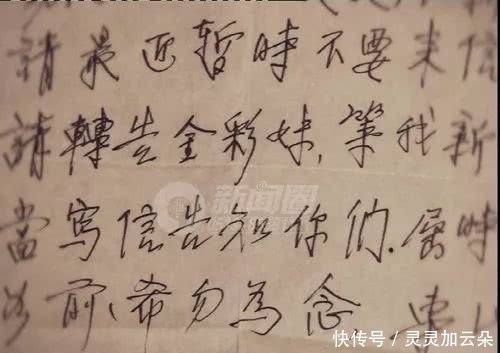 請最近暫時不要來信
請轉告金彩妹,等我新
當寫信告知你們.屆時
前、希勿為念
新闻圈
快传号/灵灵加云朵